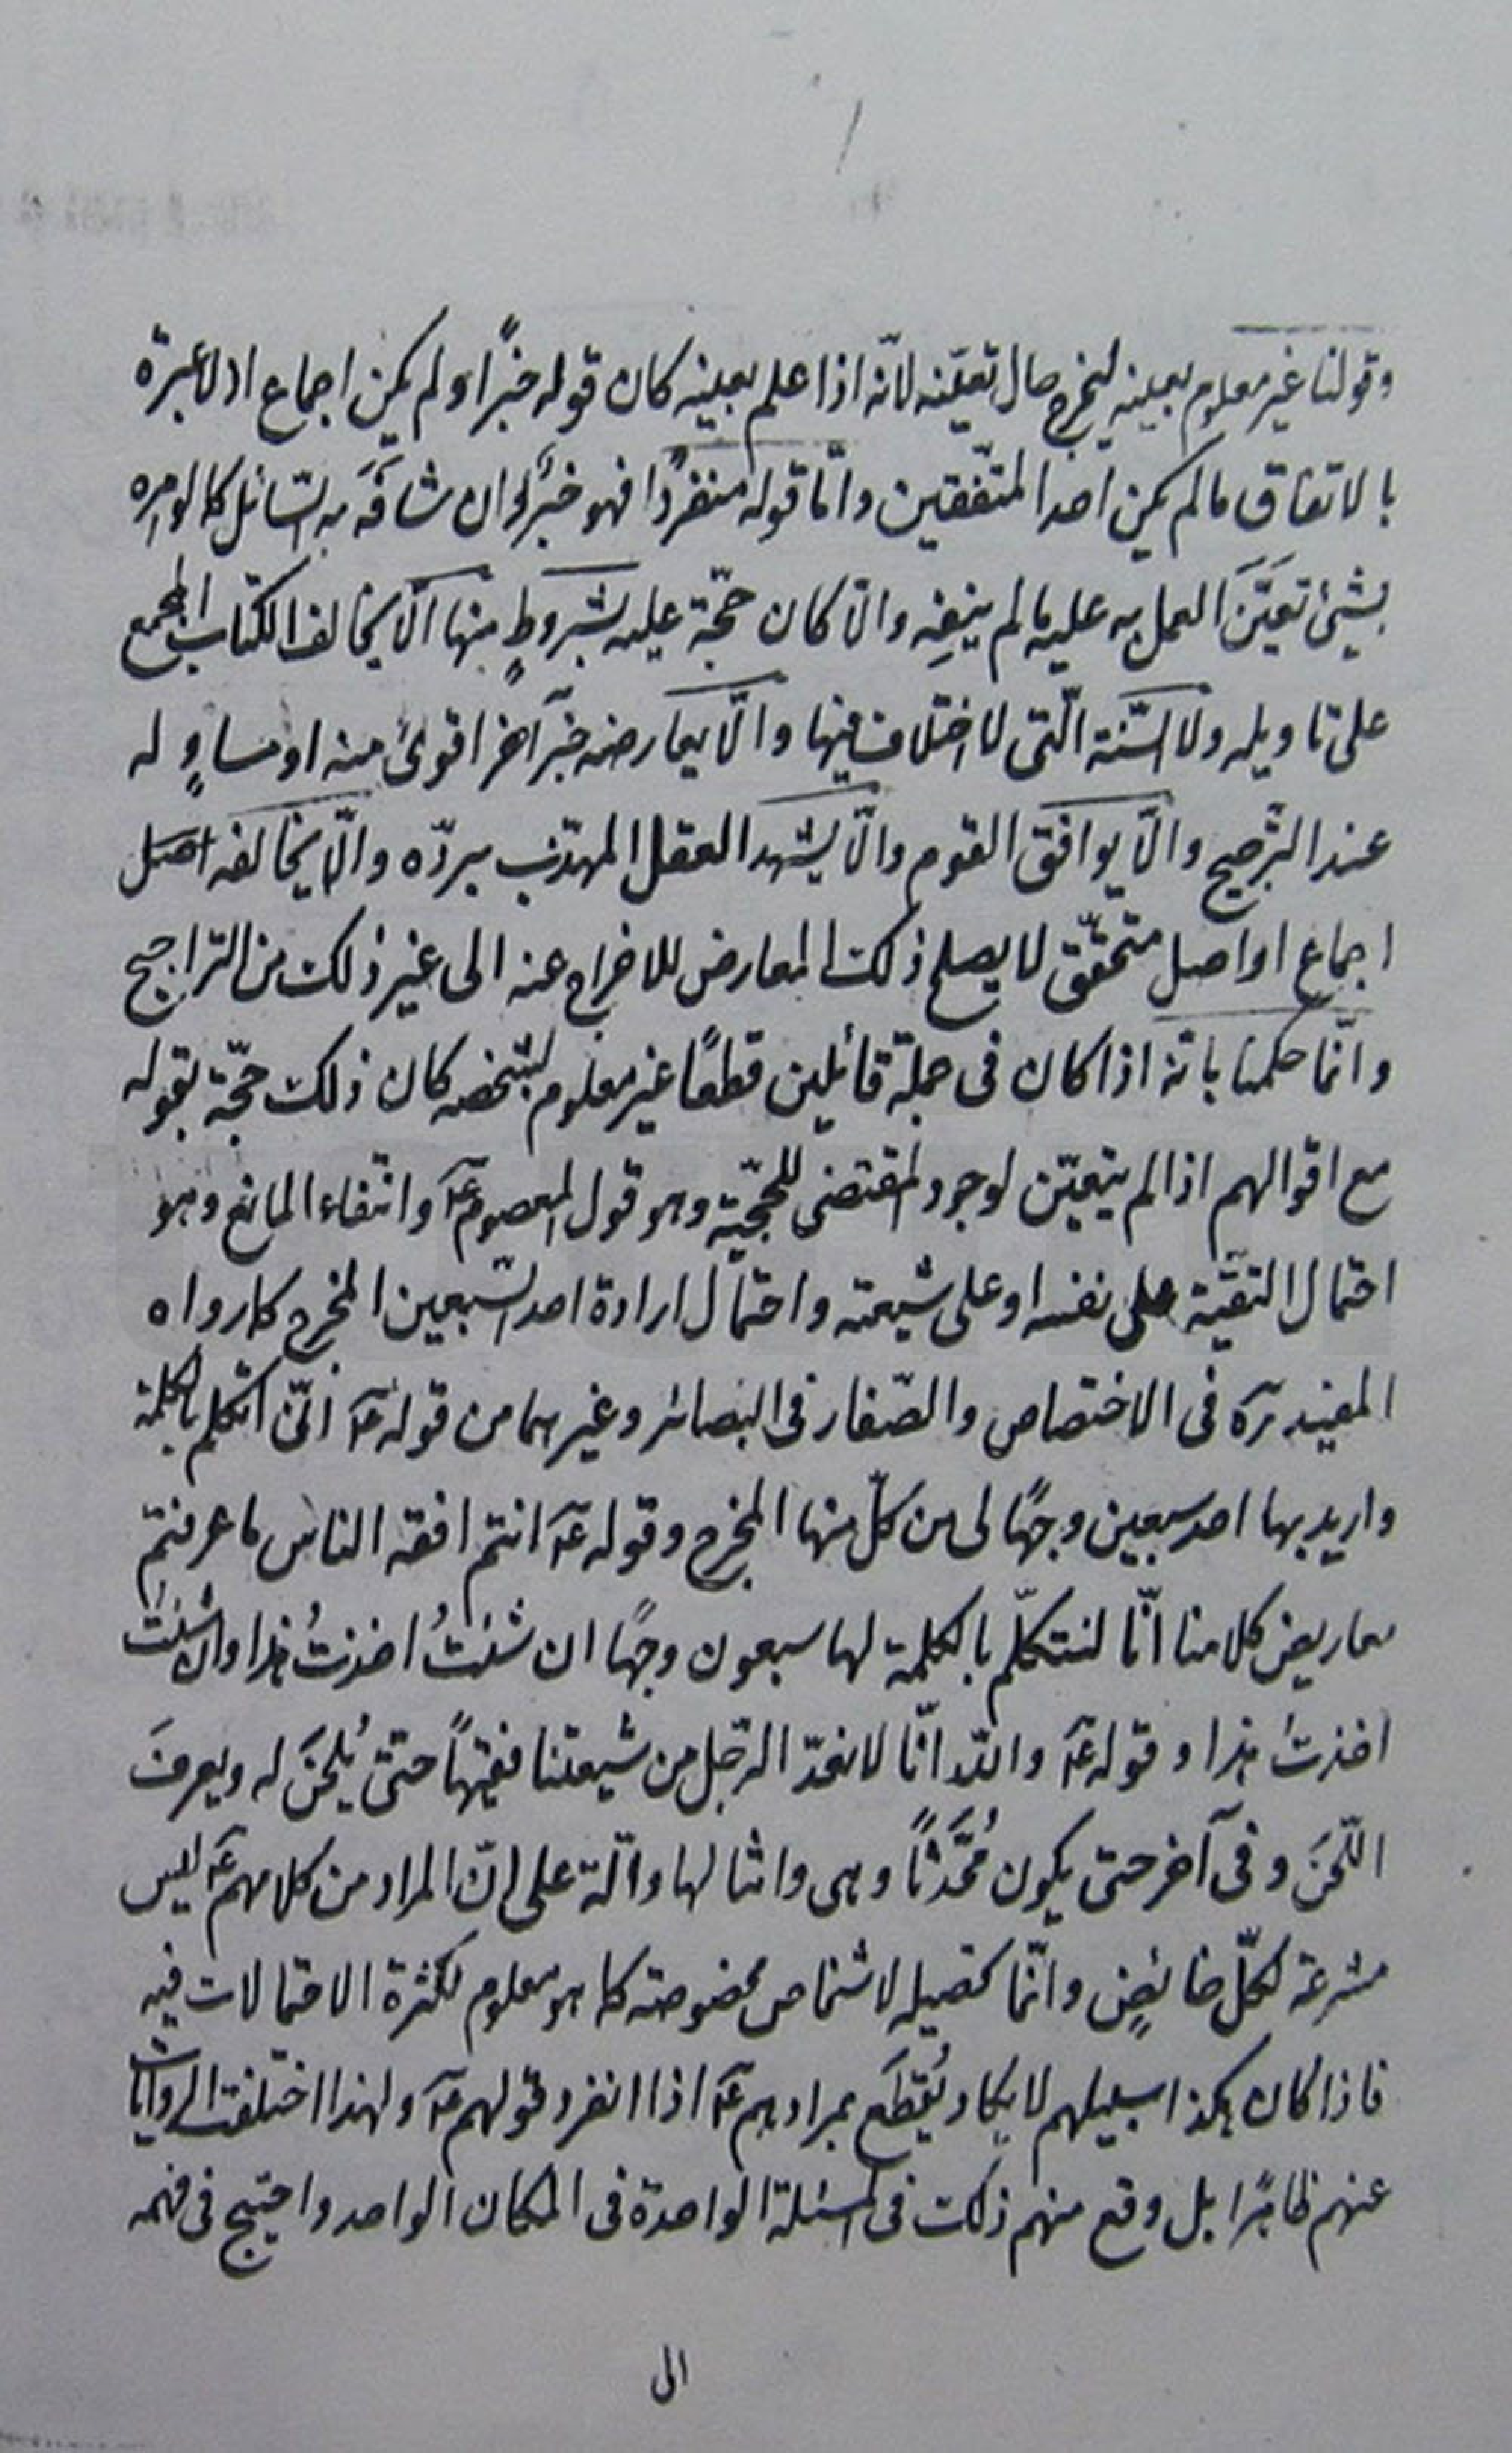 وقولنا غير معلوم بعينه ليخرج حال تعيّنه لانّه اذا علم بعينه كان قوله خبرًا ولم يكن اجماع اذ لا عبرة
بالاتفاق ما لم يكن احد المتّفقين وامّا قوله منفردًا فهو خبرٌ وان شافَهَ به السّائل كما لو امره
بشيئ تعيَّنَ العمل به عليه ما لم ينفِه والّا كان حجّة عليه بشروطٍ منها الّا يخالف الكتاب المجمع
على تاويله ولا السّنة الّتى لا اختلاف فيها والّا يعارضه خبر آخر اقوىٰ منه او مساوٍ له
عند الترّجيح والّا يوافق القوم والّا يشهد العقل المهذّب بردّه والّا يخالفه اصل
اجماع او اصل متحقّق لا يصلح ذلك المعارض للاخراج عنه الى غير ذلك من التراجيح
وانّما حكمنا بانّه اذا كان فى جملة قائلين قطعًا غير معلوم بشخصه كان ذلك حجّة بقوله
مع اقوالهم اذا لم يتعيّن لوجود المقتضى للحجّية وهو قول المعصوم عۤ وانتفاء المانع وهو
احتمال التقيّة على نفسه او على شيعته واحتمال ارادة احد السّبعين المخرج كما رواه
المفيد رۤه فى الاختصاص والصّفار فى البصائر وغيرهما من قوله عۤ انّى اتكلم بالكلمة
واريد بها احد سبعين وجهًا لى من كلّ منها المخرج وقوله عۤ انتم افقه الناس ما عرفتم
معاريض كلامنا انّا لنتكلّم بالكلمة لها سبعون وجهًا ان شئتُ اخذتُ هذا وان شئتُ
اخذتُ هذا وقوله عۤ واللّه انّا لا نعدّ الرّجل من شيعتنا فقيهًا حتىّ يُلحَنَ له ويعرفَ
اللّحنَ وفى آخر حتى يكون مُحَدَّثًا وهى وامثالها دالّة على انّ المراد من كلامهم عۤ ليس
مشرعة لكلّ خائضٍ وانّما تحصيله لاشخاص مخصوصة كما هو معلوم لكثرة الاحتمالات فيه
فاذا كان هكذا سبيلهم لا يكاد يُقطَع بمرادهم عۤ اذا انفرد قولهم عۤ ولهذا اختلفت الروايات
عنهم ظاهرًا بل وقع منهم ذلك فى المسئلة الواحدة فى المكان الواحد واحتيج فى فهمه
الى